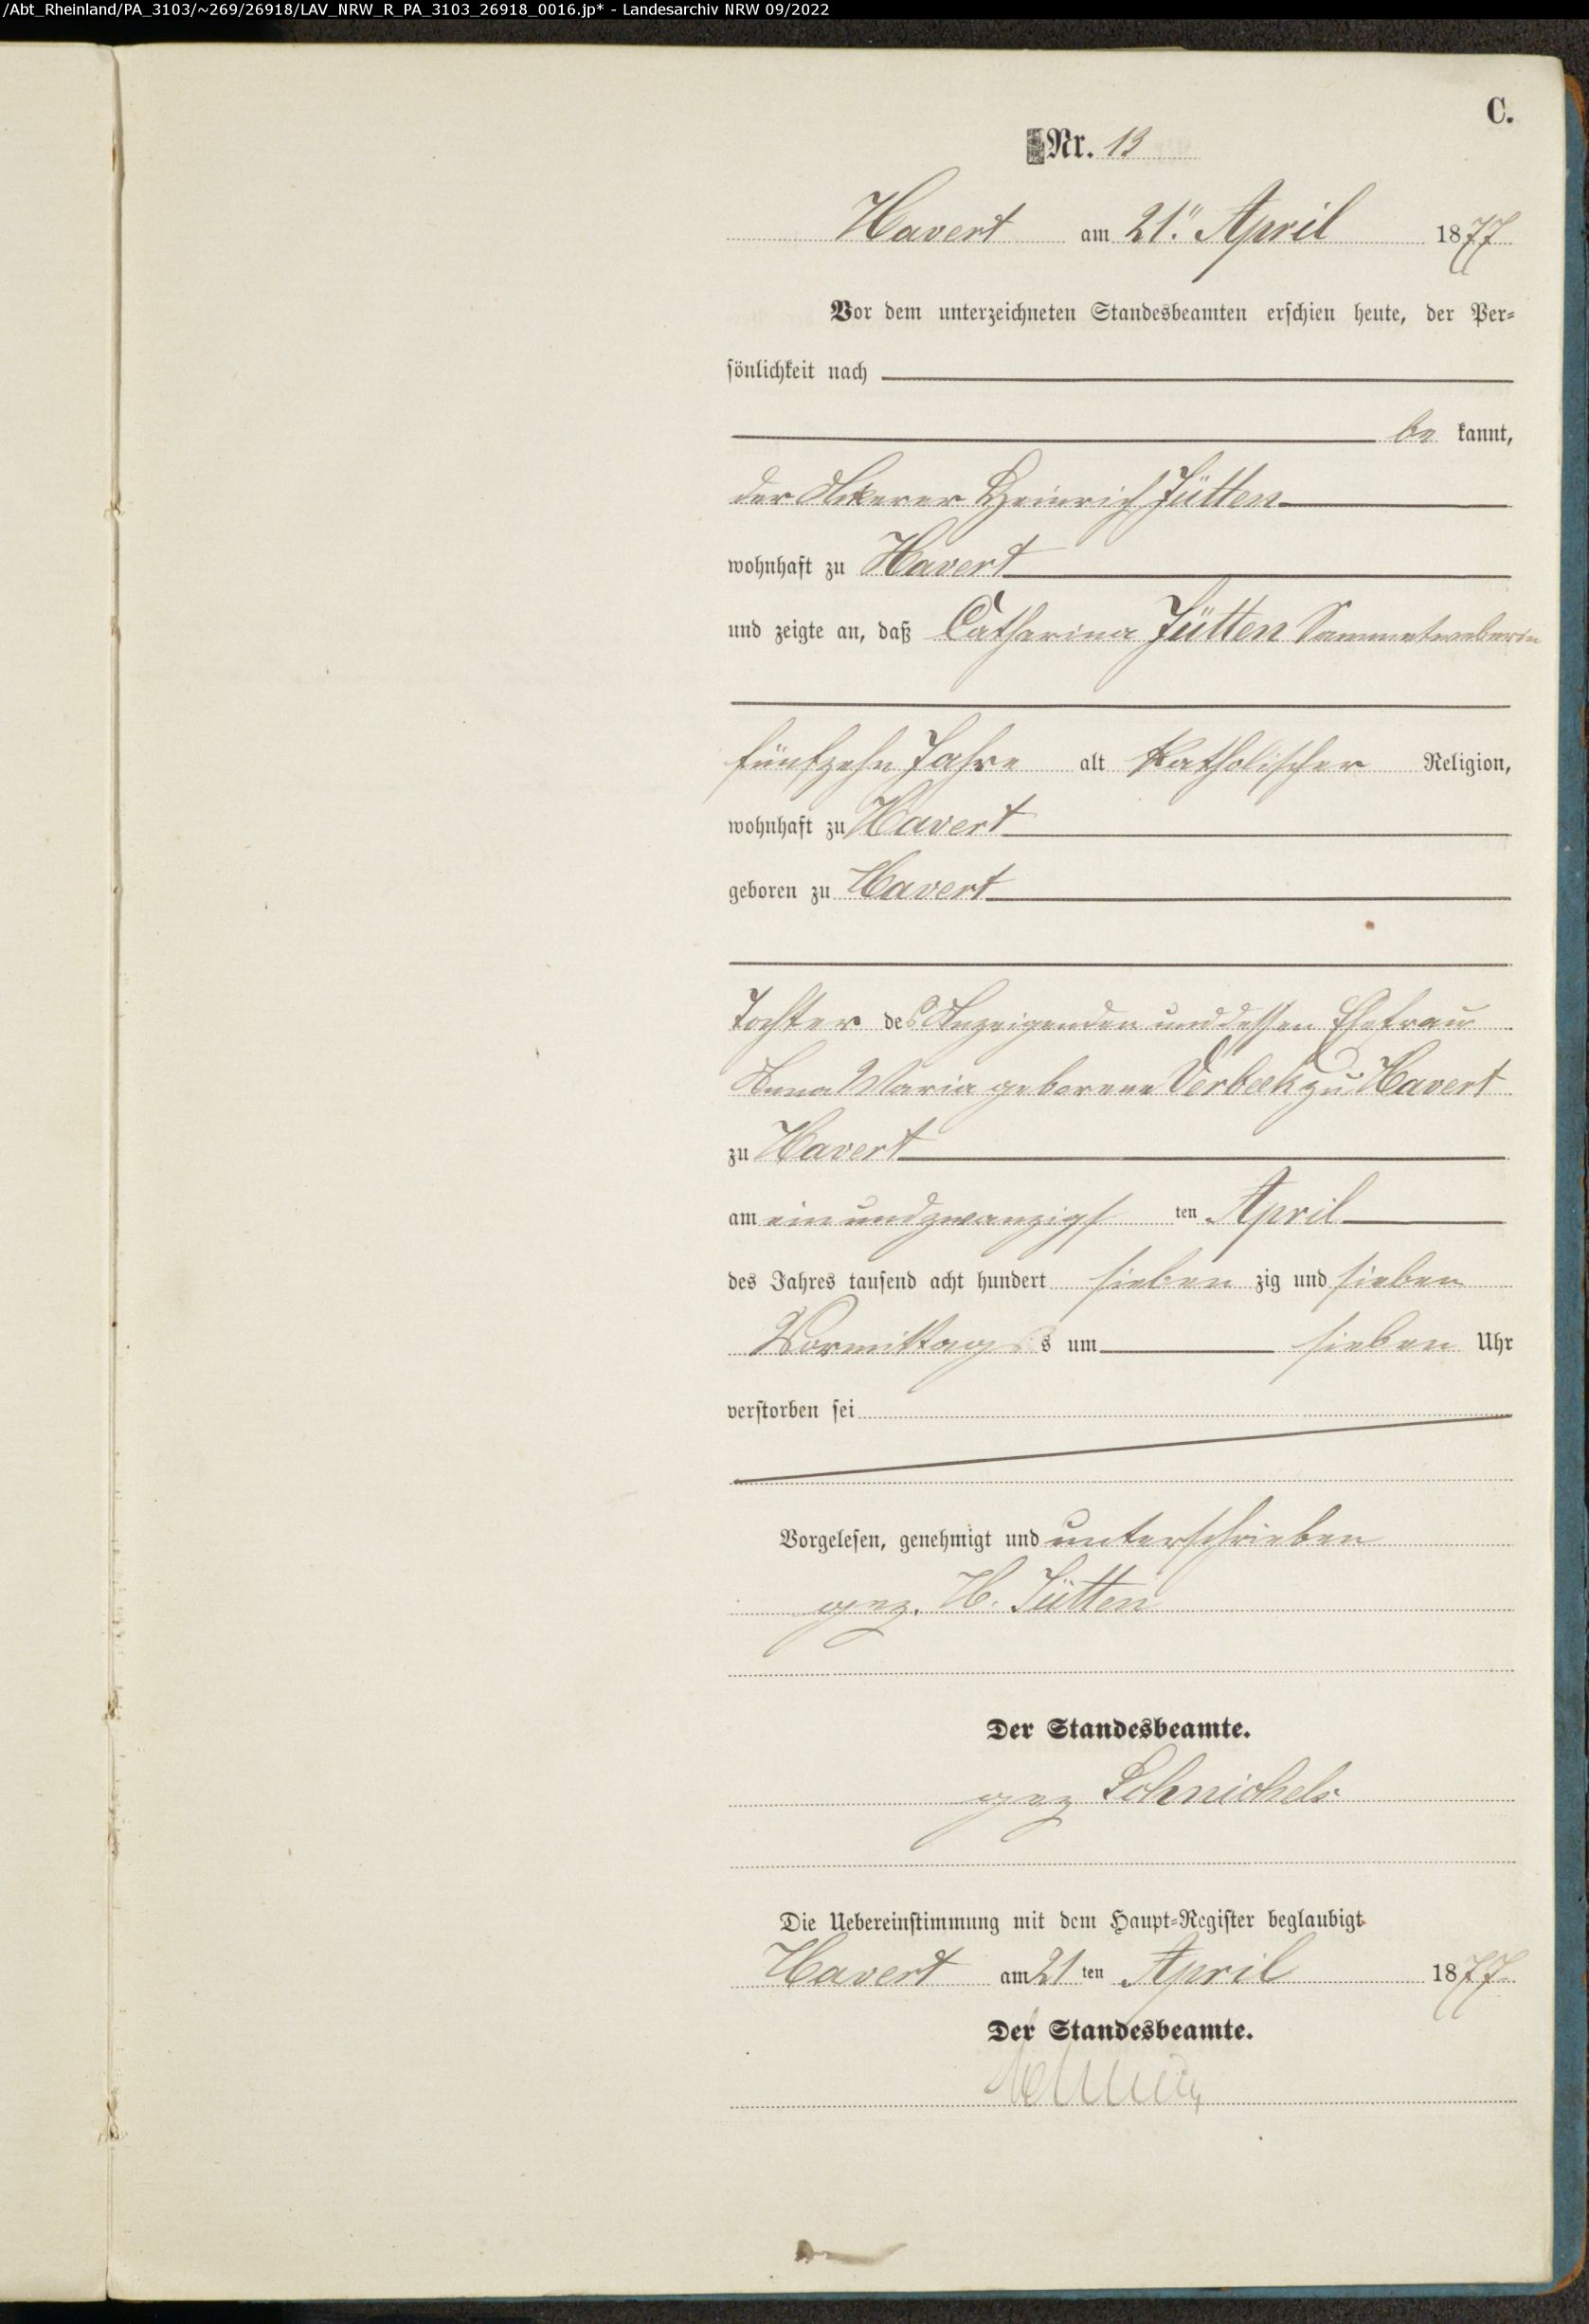 /Abt_Rheinland/PA_3103/~269/26918/LAV_NRW_R_PA_3103_26918_0016.jp* - Landesarchiv NRW 09/2022
C.
Nr. 13
Havert am 21. April 1877
Vor dem unterzeichneten Standesbeamten erschien heute, der Per=
sönlichkeit nach
be kannt,
der Ackerer Heinrich Jütten
wohnhaft zu Havert
und zeigte an, daß Catharina Jütten Sammetweberin
fünfzehn Jahre alt katholischer Religion,
wohnhaft zu Havert
geboren zu Havert
Tochter des Anzeigenden und dessen Ehefrau
Anna Maria geborene Verbeek zu Havert
zu Havert
am ein und zwanzigs ten April
des Jahres tausend acht hundert sieben zig und sieben
Vormittags um sieben Uhr
verstorben sei
Vorgelesen, genehmigt und unterschrieben
gez. H. Jütten
Der Standesbeamte.
gez Schnichels
Die Uebereinstimmung mit dem Haupt=Register beglaubigt
Havert am 21 ten April 1877.
Der Standesbeamte.